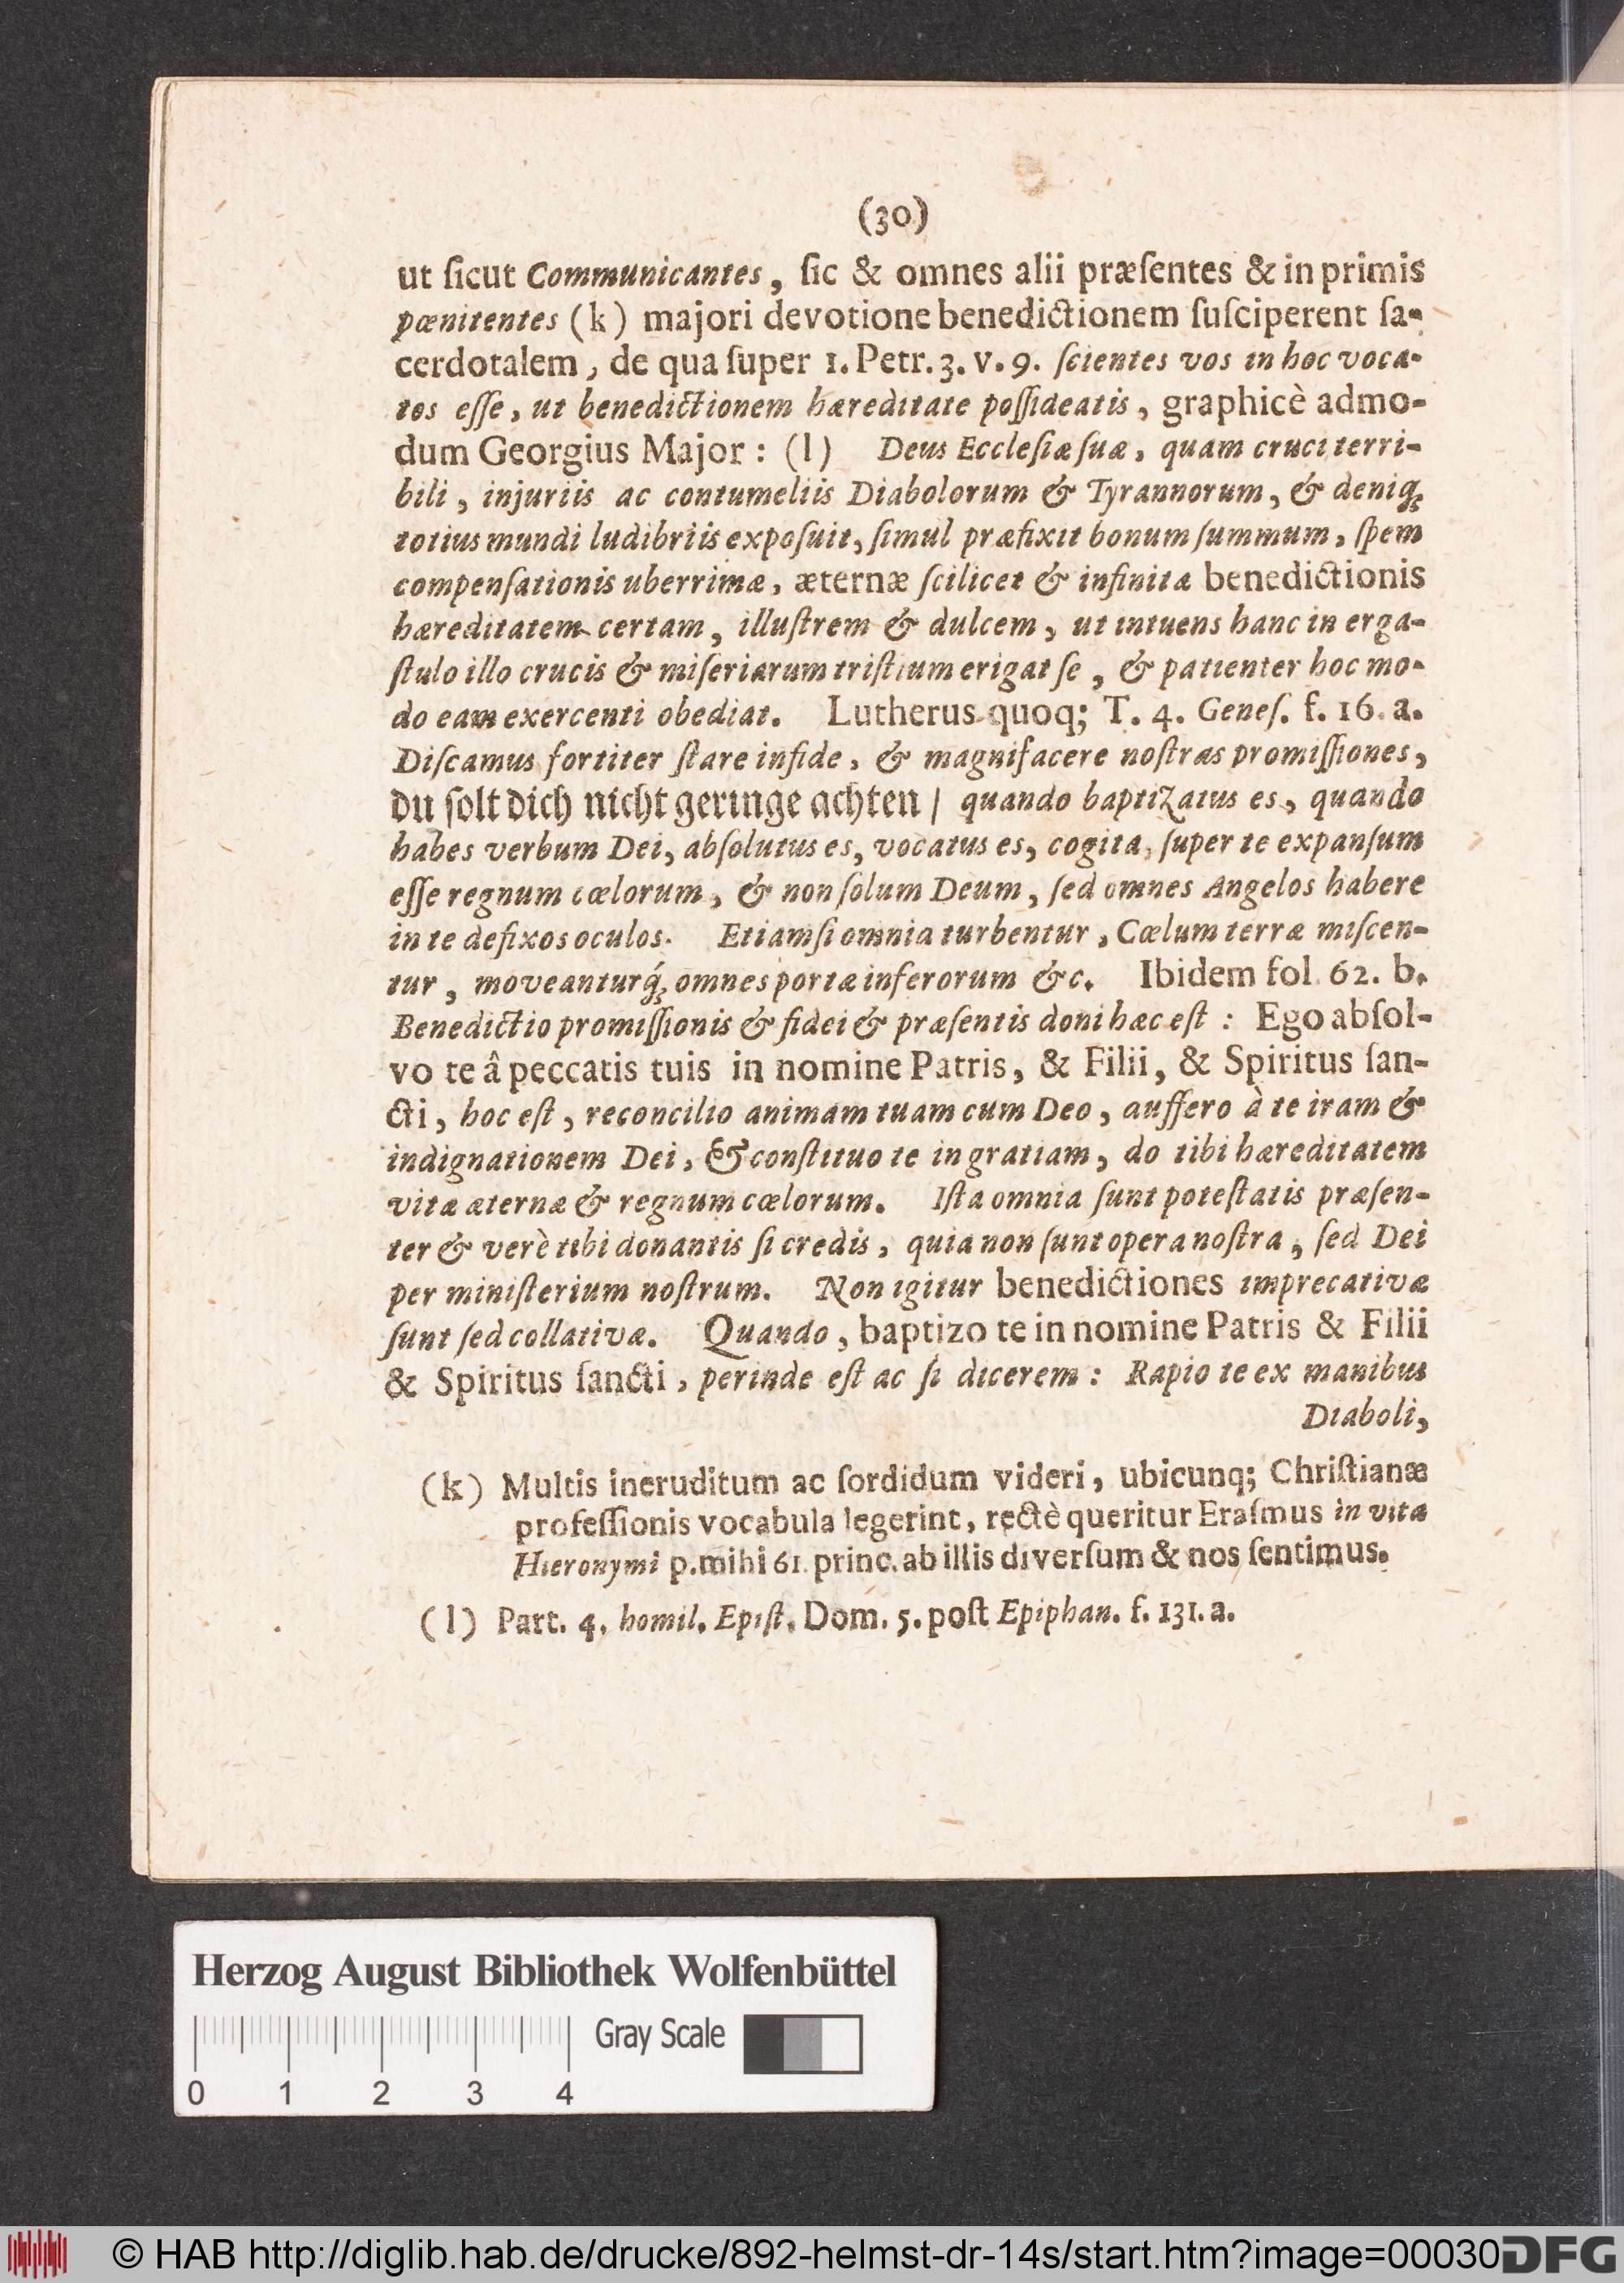 (30)
ut ſicut Communicantes, ſic & omnes alii præſentes & in primis
pœnitentes (k) majori devotione benedictionem ſuſciperent ſa-
cerdotalem, de qua ſuper 1. Petr. 3. v. 9. ſcientes vos in hoc voca-
tos eſſe, ut benedictionem hæreditate poſſideatis, graphicè admo-
dum Georgius Major: (l) Deus Eccleſiæ ſuæ, quam cruci terri-
bili, injuriis ac contumeliis Diabolorum & Tyrannorum, & deniq;
totius mundi ludibriis expoſuit, ſimul præfixit bonum ſummum, ſpem
compenſationis uberrimæ, æternæ ſcilicet & infinitæ benedictionis
hæreditatem certam, illuſtrem & dulcem, ut intuens hanc in erga-
ſtulo illo crucis & miſeriarum triſtium erigat ſe, & patienter hoc mo-
do eam exercenti obediat. Lutherus quoq; T. 4. Geneſ. f. 16. a.
Diſcamus fortiter ſtare in fide, & magnifacere noſtras promiſſiones,
du ſolt dich nicht geringe achten / quando baptizatus es, quando
habes verbum Dei, abſolutus es, vocatus es, cogita, ſuper te expanſum
eſſe regnum cœlorum, & non ſolum Deum, ſed omnes Angelos habere
in te defixos oculos. Etiamſi omnia turbentur, Cœlum terræ miſcen-
tur, moveanturq́; omnes portæ inferorum &c. Ibidem fol. 62. b.
Benedictio promiſſionis & fidei & præſentis doni hæc eſt: Ego abſol-
vo te â peccatis tuis in nomine Patris, & Filii, & Spiritus ſan-
cti, hoc eſt, reconcilio animam tuam cum Deo, auffero à te iram &
indignationem Dei, & conſtituo te in gratiam, do tibi hæreditatem
vitæ æternæ & regnum cœlorum. Iſta omnia ſunt poteſtatis præſen-
ter & verè tibi donantis ſi credis, quia non ſunt opera noſtra, ſed Dei
per miniſterium noſtrum. Non igitur benedictiones imprecativæ
ſunt ſed collativæ. Quando, baptizo te in nomine Patris & Filii
& Spiritus ſancti, perinde eſt ac ſi dicerem: Rapio te ex manibus
Diaboli,
(k) Multis ineruditum ac ſordidum videri, ubicunq; Chriſtianæ
profeſſionis vocabula legerint, rectè queritur Eraſmus in vita
Hieronymi p. mihi 61. princ. ab illis diverſum & nos ſentimus.
(l) Part. 4. homil. Epiſt. Dom. 5. poſt Epiphan. f. 131. a.
Herzog August Bibliothek Wolfenbüttel
Gray Scale
0 1 2 3 4
© HAB http://diglib.hab.de/drucke/892-helmst-dr-14s/start.htm?image=00030
DFG